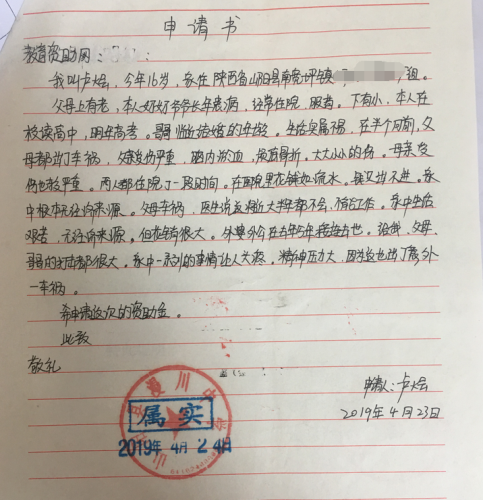 申请书
教育资助网：
我叫卢       ，今年16岁，家住陕西省山阳县南宽坪镇       组。
父母上有老，本人奶奶爷爷长年患病，经常住院，服药。下有小，本人在
校读高中，明年高考。哥哥临近结婚的年龄。生活实属不易，在半个月前，父
母都出了车祸，父亲受伤严重，脑内淤血，                 骨折，大大小小的伤。母亲受
伤也较严重。两人都住院了一段时间。在医院里花钱如流水。钱又出不进。家
中根本无经济来源。父母车祸，医生说                 大半年都不会有工作。家中生活
艰苦，无经济来源。但花销很大。外婆
哥哥的打击都很大。家中一系列的事情让人头疼。精神压力大，因为这也出了意外
一车祸。
希申请这次的资助金。
此致
敬礼
申请人：卢
2019年4月23日
属实
2019年 4月 24日